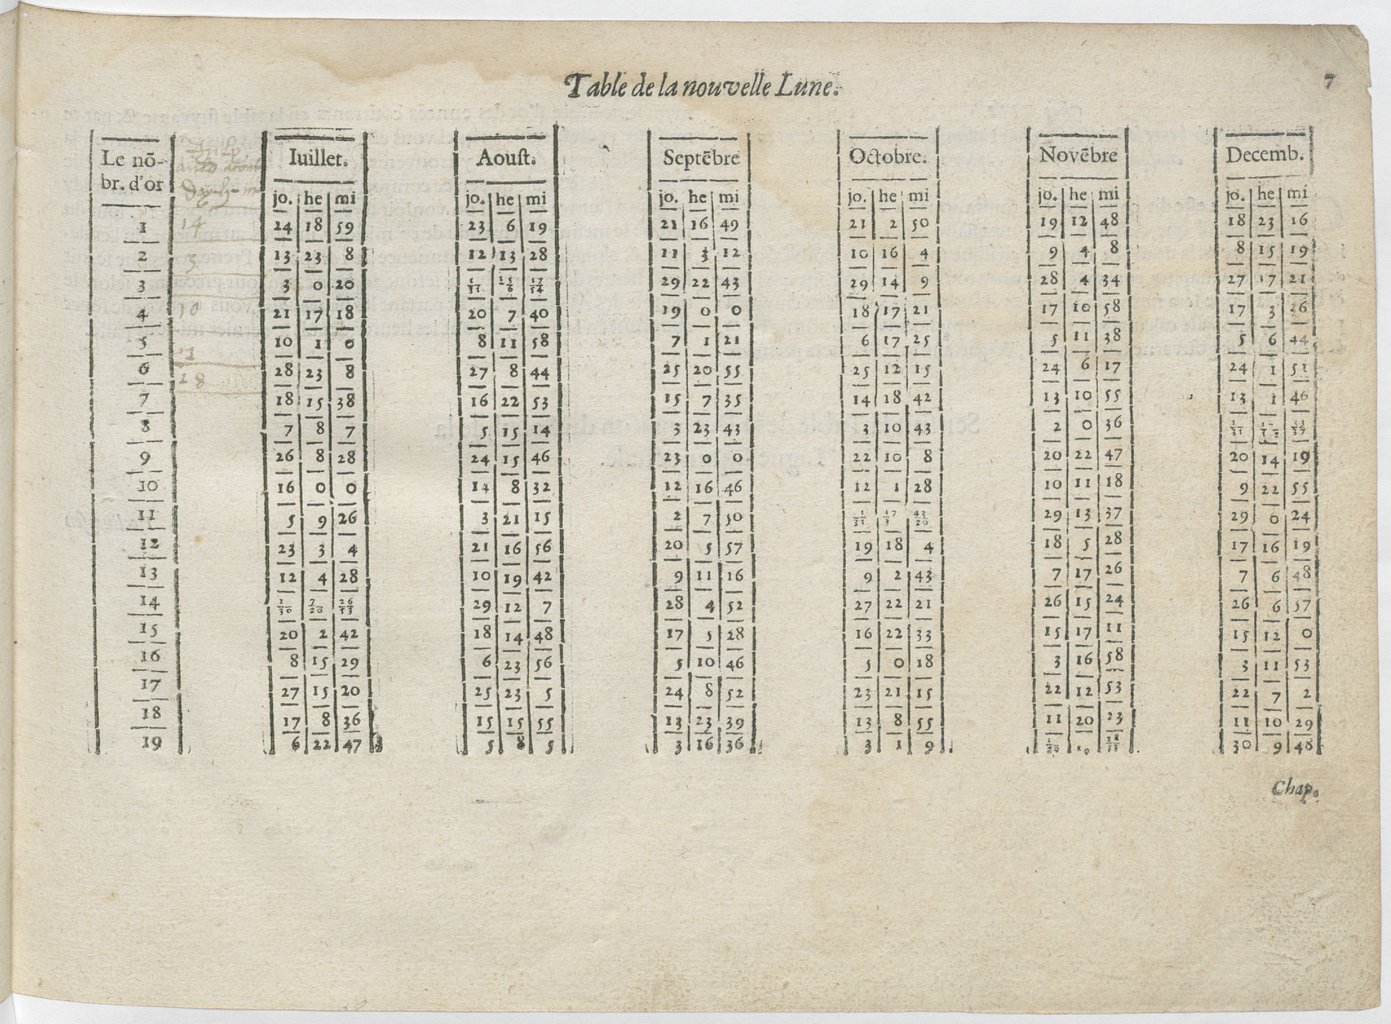 Table de la nouvelle Lune.
7
Le nō- Iuillet. Aouſt. Septēbre Octobre. Novēbre Decemb.
br. d'or jo. he mi jo. he mi jo. he mi jo. he mi jo. he mi jo. he mi
1 24 18 59 23 6 19 21 16 49 21 2 50 19 12 48 18 23 16
2 13 23 8 12 13 28 11 3 12 10 16 4 9 4 8 8 15 19
3 3 0 20 29 22 43 29 14 9 28 4 34 27 17 21
4 21 17 18 20 7 40 19 0 0 18 17 21 17 10 58 17 3 26
5 10 1 0 8 11 58 7 1 21 6 17 25 5 11 38 5 6 44
6 28 23 8 27 8 44 25 20 55 25 12 15 24 6 17 24 1 51
7 18 15 38 16 22 53 15 7 35 14 18 42 13 10 55 13 1 46
8 7 8 7 5 15 14 3 23 43 3 10 43 2 0 36
9 26 8 28 24 15 46 23 0 0 22 10 8 20 22 47 20 14 19
10 16 0 0 14 8 32 12 16 46 12 1 28 10 11 18 9 22 55
11 5 9 26 3 21 15 2 7 50 29 13 37 29 0 24
12 23 3 4 21 16 56 20 5 57 19 18 4 18 5 28 17 16 19
13 12 4 28 10 19 42 9 11 16 9 2 43 7 17 26 7 6 48
14 1/30 7/20 26/53 29 12 7 28 4 52 27 22 21 26 15 24 26 6 57
15 20 2 42 18 14 48 17 5 28 16 22 33 15 17 11 15 12 0
16 8 15 29 6 23 56 5 10 46 5 0 18 3 16 58 3 11 53
17 27 15 20 25 23 5 24 8 52 23 21 15 22 12 53 22 7 2
18 17 8 36 15 15 55 13 23 39 13 8 55 11 20 23 11 10 29
19 6 22 47 5 8 5 3 16 36 3 1 9 30 9 48
Chap.